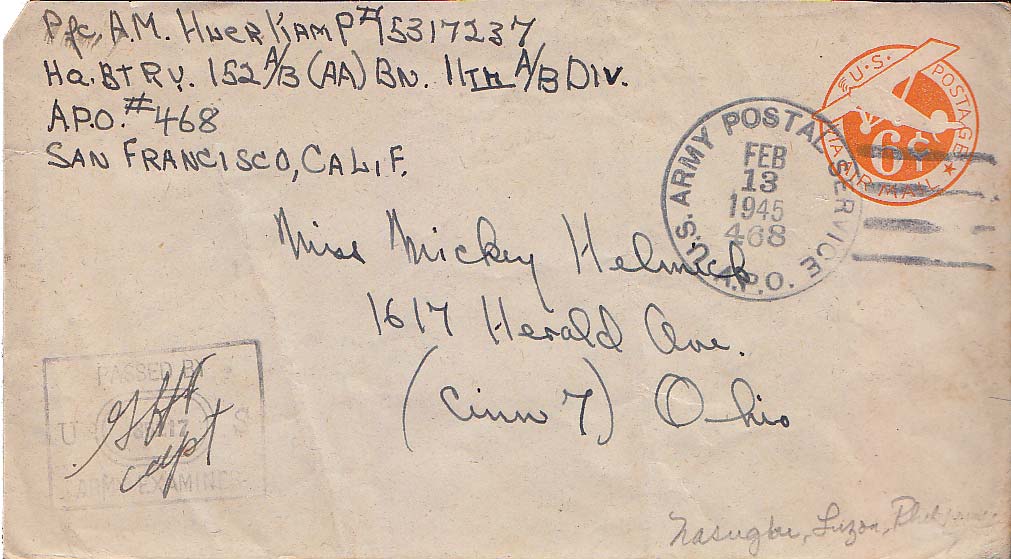 Pfc. A.M. Huerkamp #15317237
Hq. Btry. 152 A/B (AA) Bn. 11th A/B Div.
A.P.O. #468
San Francisco, Calif.
U.S. POSTAGE
6¢
VIA AIR MAIL
U.S. ARMY POSTAL SERVICE
FEB
13
1945
468
A.P.O.
Miss Mickey Helmick
1617 Herald Ave.
(Cinn 7) Ohio
PASSED BY
U S
capt
ARMY EXAMINER
Nasugbu, Luzon, Philippines